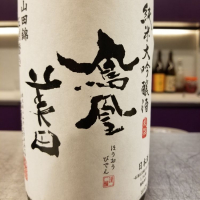 純米大吟醸酒
鳳凰
美田
ほうおう
びでん
山田錦
日本酒